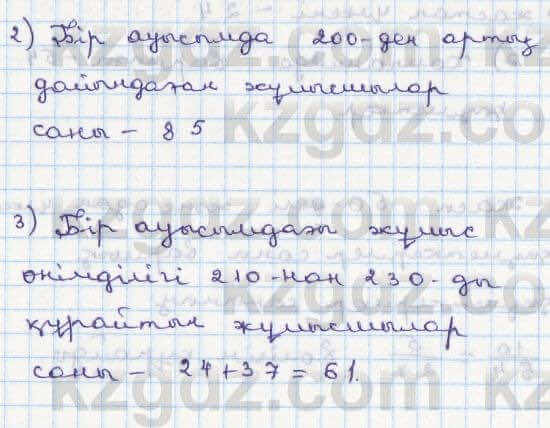 2) Бір ауысымда 200-ден артық
дайындаған жұмысшылар
саны - 85
3) Бір ауысымдағы жұмыс
өнімділігі 210-нан 230-ды
құрайтын жұмысшылар
саны - 24+37=61.
kzgdz.com